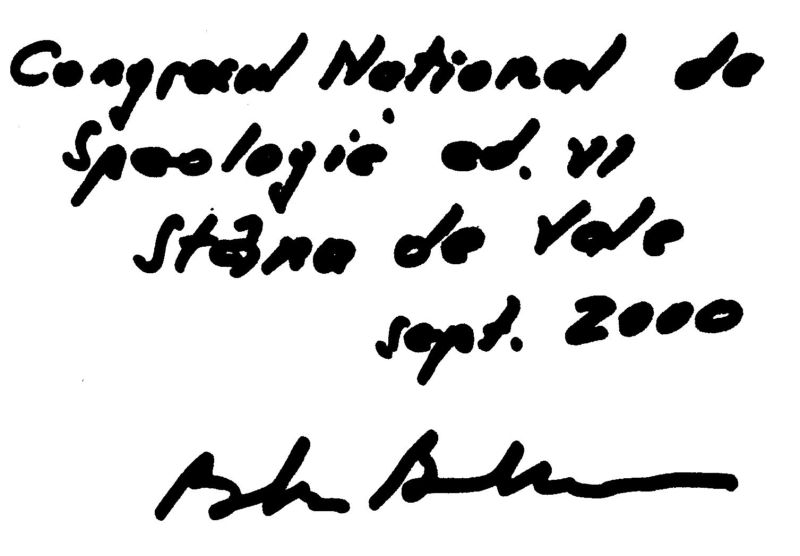 Congresul Național de
Speologie ed. VI
Stâna de Vale
sept. 2000